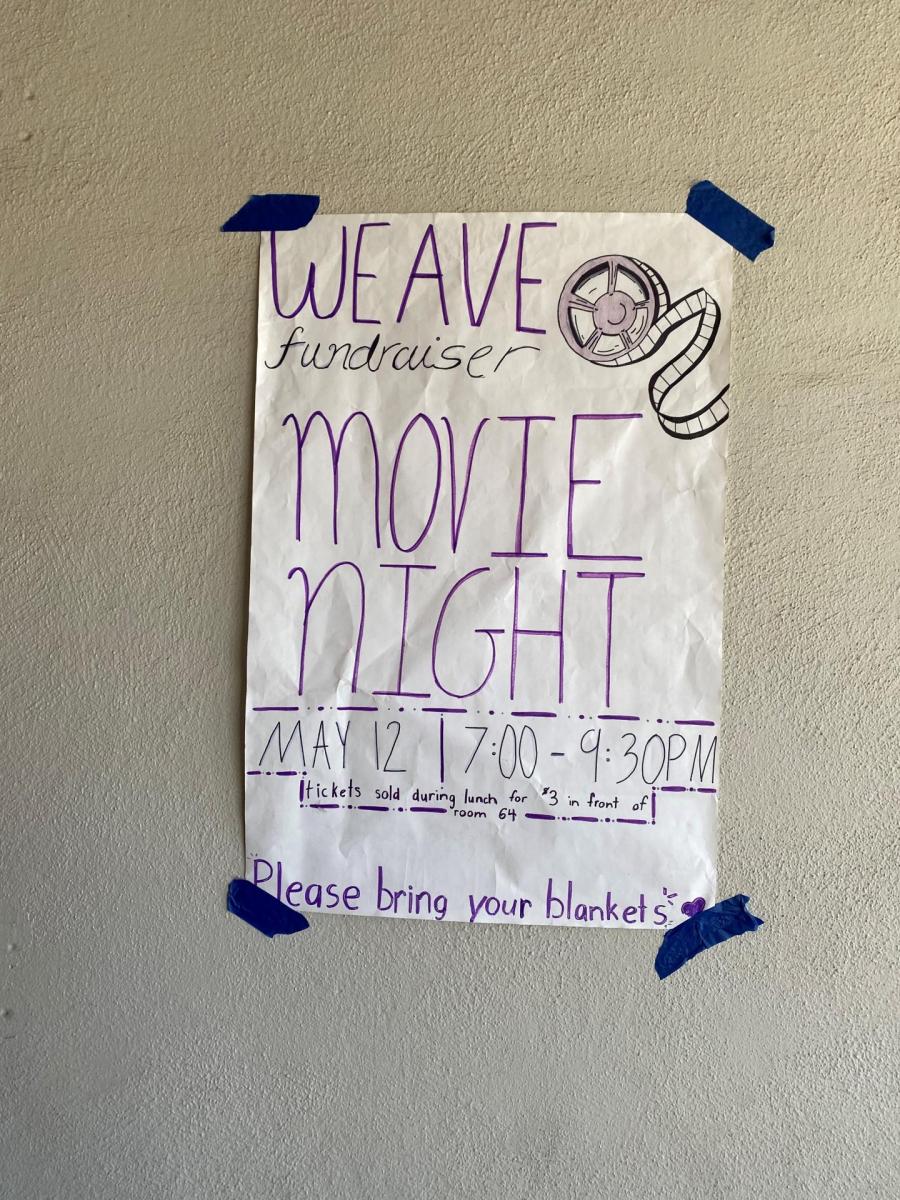 WEAVE
fundraiser
MOVIE
NIGHT
MAY 12 | 7:00 - 9:30PM
tickets sold during lunch for $3 in front of
room 64
Please bring your blankets